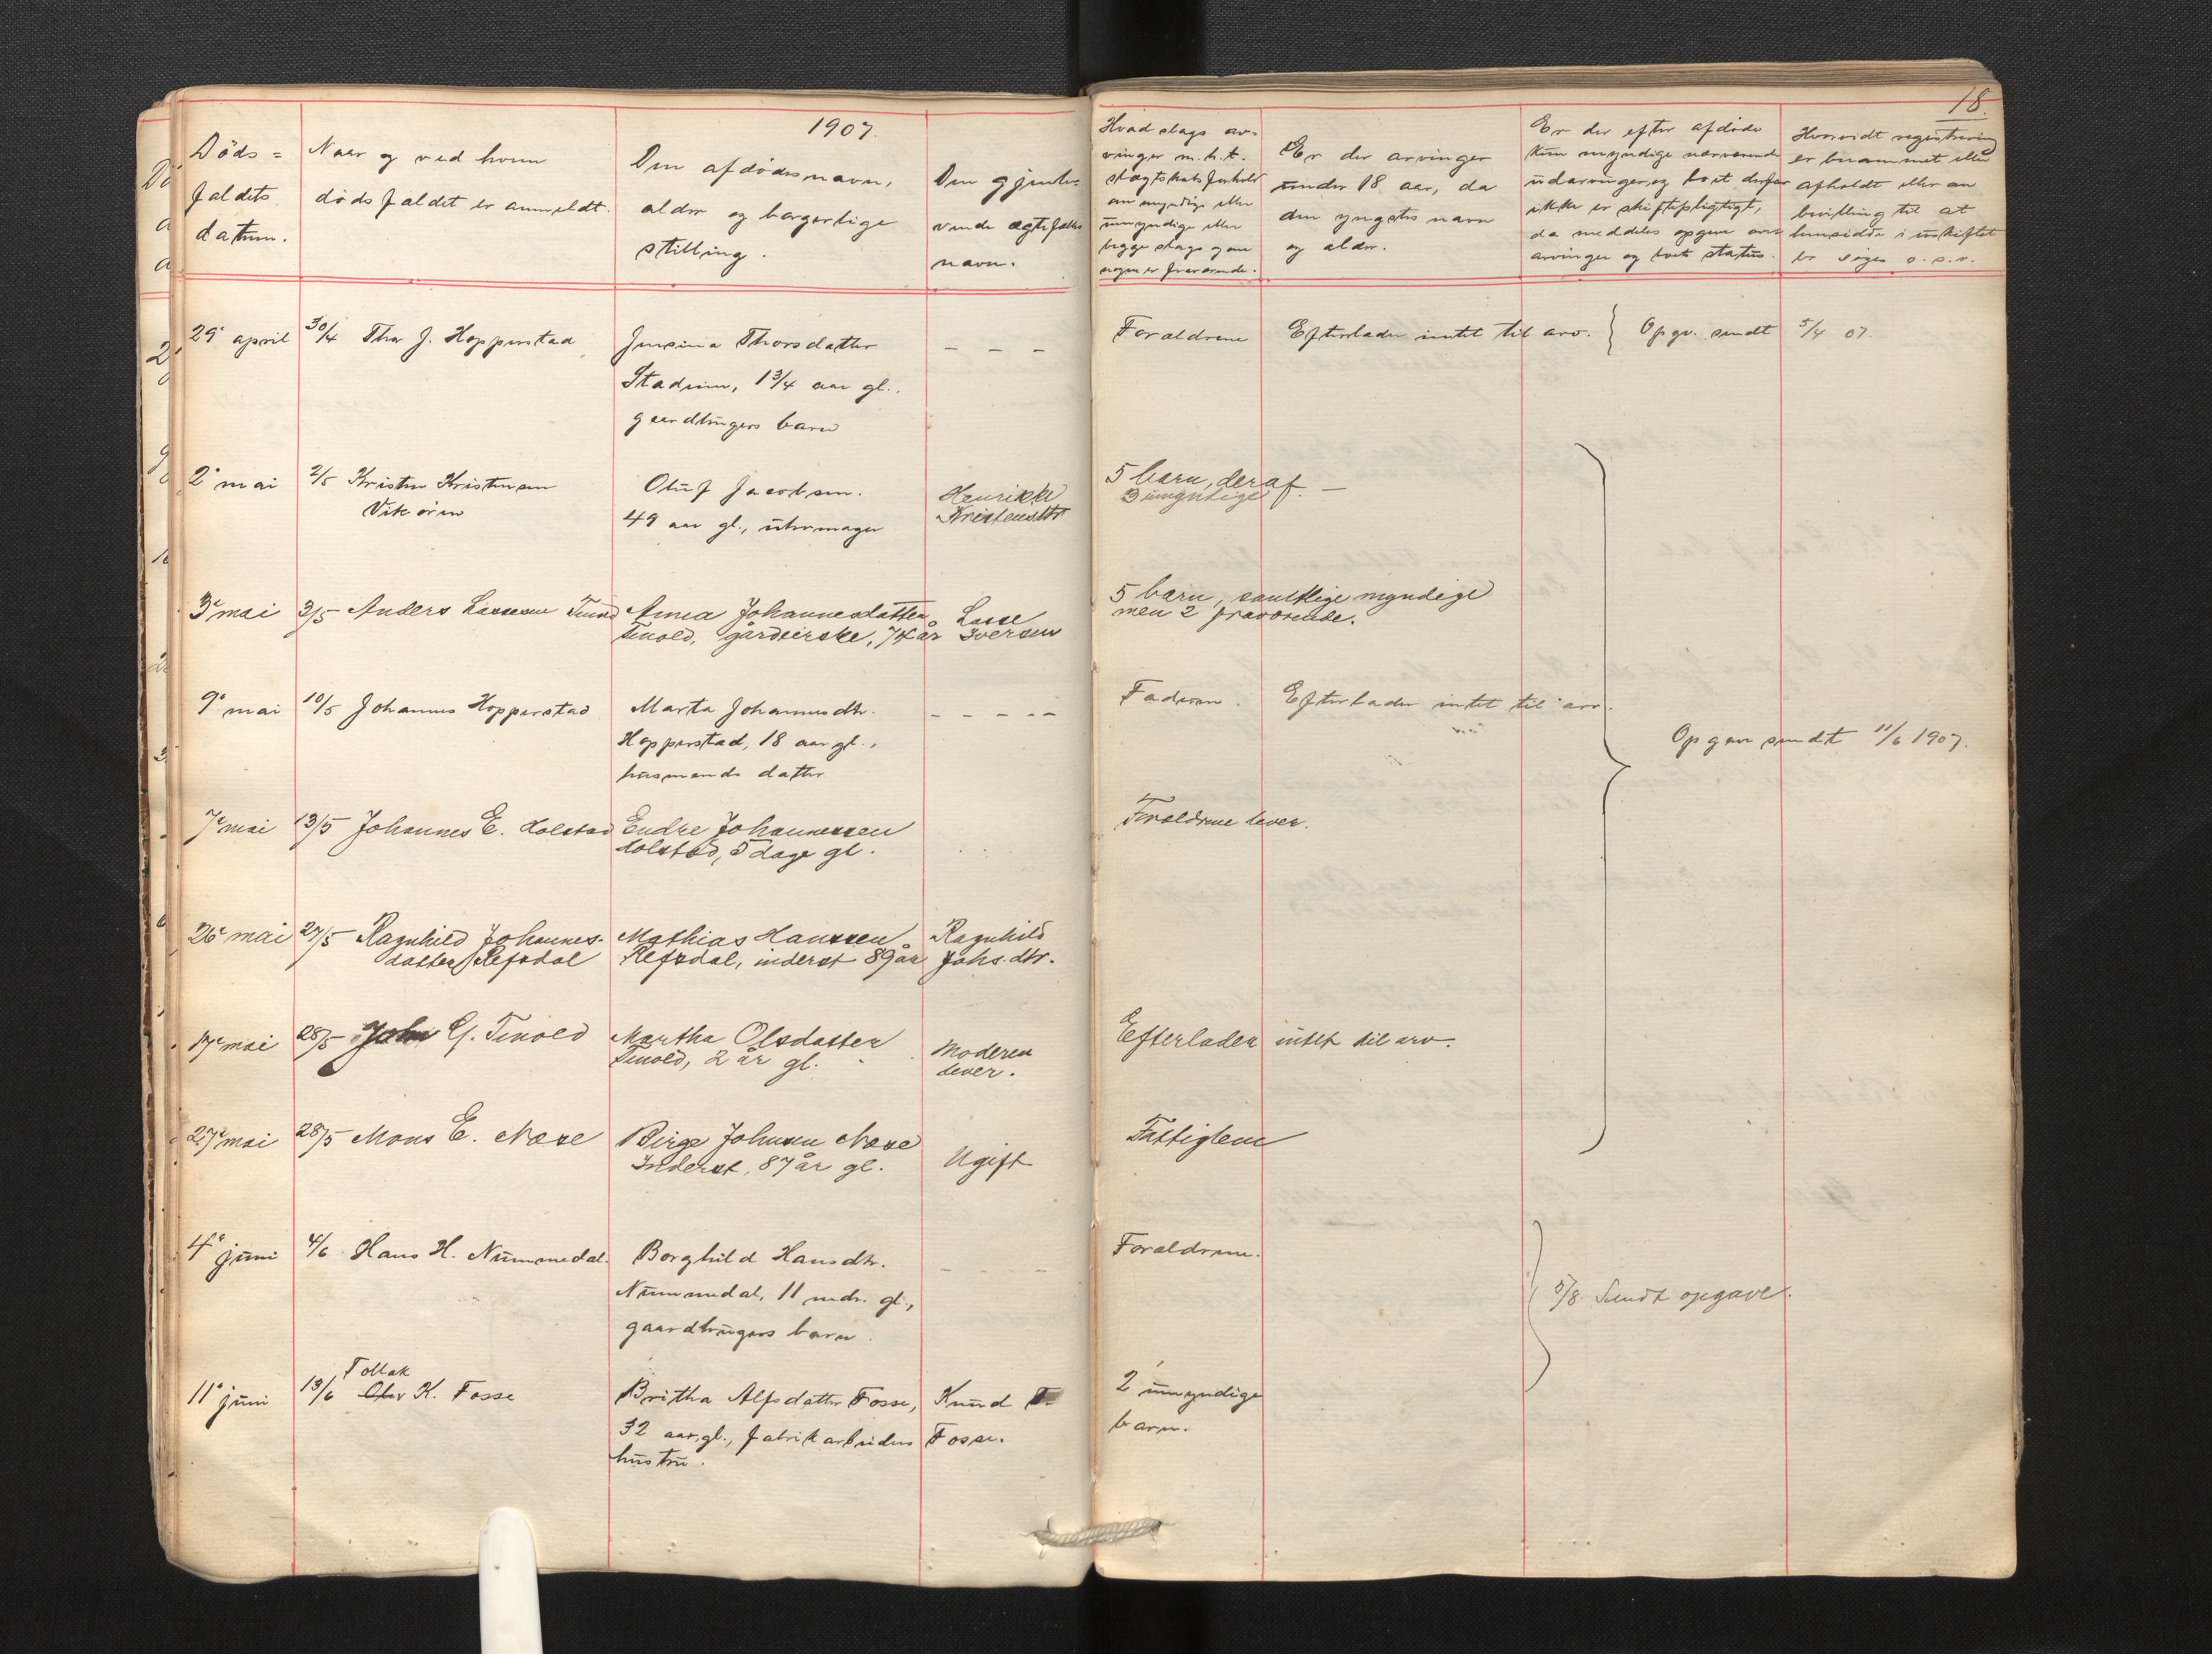 1907.
18.
Döds=
faldets
datum.
Naar og ved hvem
dödsfaldet er anmeldt.
Den afdødes navn,
alder og borgerlige
stilling.
Den gjenle-
vende ægtefælles
navn.
Hvad slags ar-
vinger m. h. t.
slegtskabsforhold
om myndige eller
umyndige eller
begge slags og om
nogen er fraværende.
Er der arvinger
under 18 aar, da
den yngstes navn
og alder.
Er der efter afdøde
kun myndige nærværende
udarvinger, og boet derfor
ikke er skiftepligtigt,
da meddeles opgave over
arvinger og boets status.
Hvorvidt registrering
er berammet eller
afholdt eller om
bevilling til at
hensidde i uskiftet
bo søges o. s. v.
29' april 30/4 Thor J. Hopperstad Jensina Thorsdatter – – – Forældrene Efterlader intet til arv. } Opgv. sendt 5/4 07.
Stadium, 1 3/4 aar gl.,
gaardbrugers barn
2' mai 2/5 Kristen Kristensen Oluf Jacobsen. Henrikke 5 barn, deraf. –
Vikøren 49 aar gl., uhrmager Kristensdtr 3 umyndige
3' mai 3/5 Anders Lassesen Tenold Anna Johannesdatter Lasse 5 barn, samtlige myndige
Tenold, gårdeierske, 74 år Iversen men 2 fraværende.
9' mai 10/5 Johannes Hopperstad Marta Johannesdtr. – – – – – Faderen. Efterlader intet til arv.
Hopperstad, 18 aar gl.,
husmands datter
Opgave sendt 11/6 1907.
7' mai 13/5 Johannes E. Holstad Endre Johannessen Forældrene lever.
Holstad, 5 dage gl.
26' mai 27/5 Ragnhild Johannes- Mathias Hanssen Ragnhild
datter Refsdal Refsdal, inderst 89 år Johs. dtr.
17' mai 28/5 John G. Tenold Martha Olsdatter Moderen Efterlader intet til arv.
Tenold, 2 år gl. lever.
27' mai 28/5 Mons E. Næse Birge Johnsen Næse Ugift Fattiglem
Inderst, 87 år gl.
4' juni 4/6 Hans H. Nummedal. Borghild Hansdtr. – – – Forældrene.
Nummedal, 11 mdr. gl.,
gaardbrugers barn.
5/8 Sendt opgave.
Tollak
11' juni 13/6 K. Fosse Britha Alfsdatter Fosse, Knud 2 umyndige
32 aar gl., fabrikarbeiders Fosse. barn.
hustru.